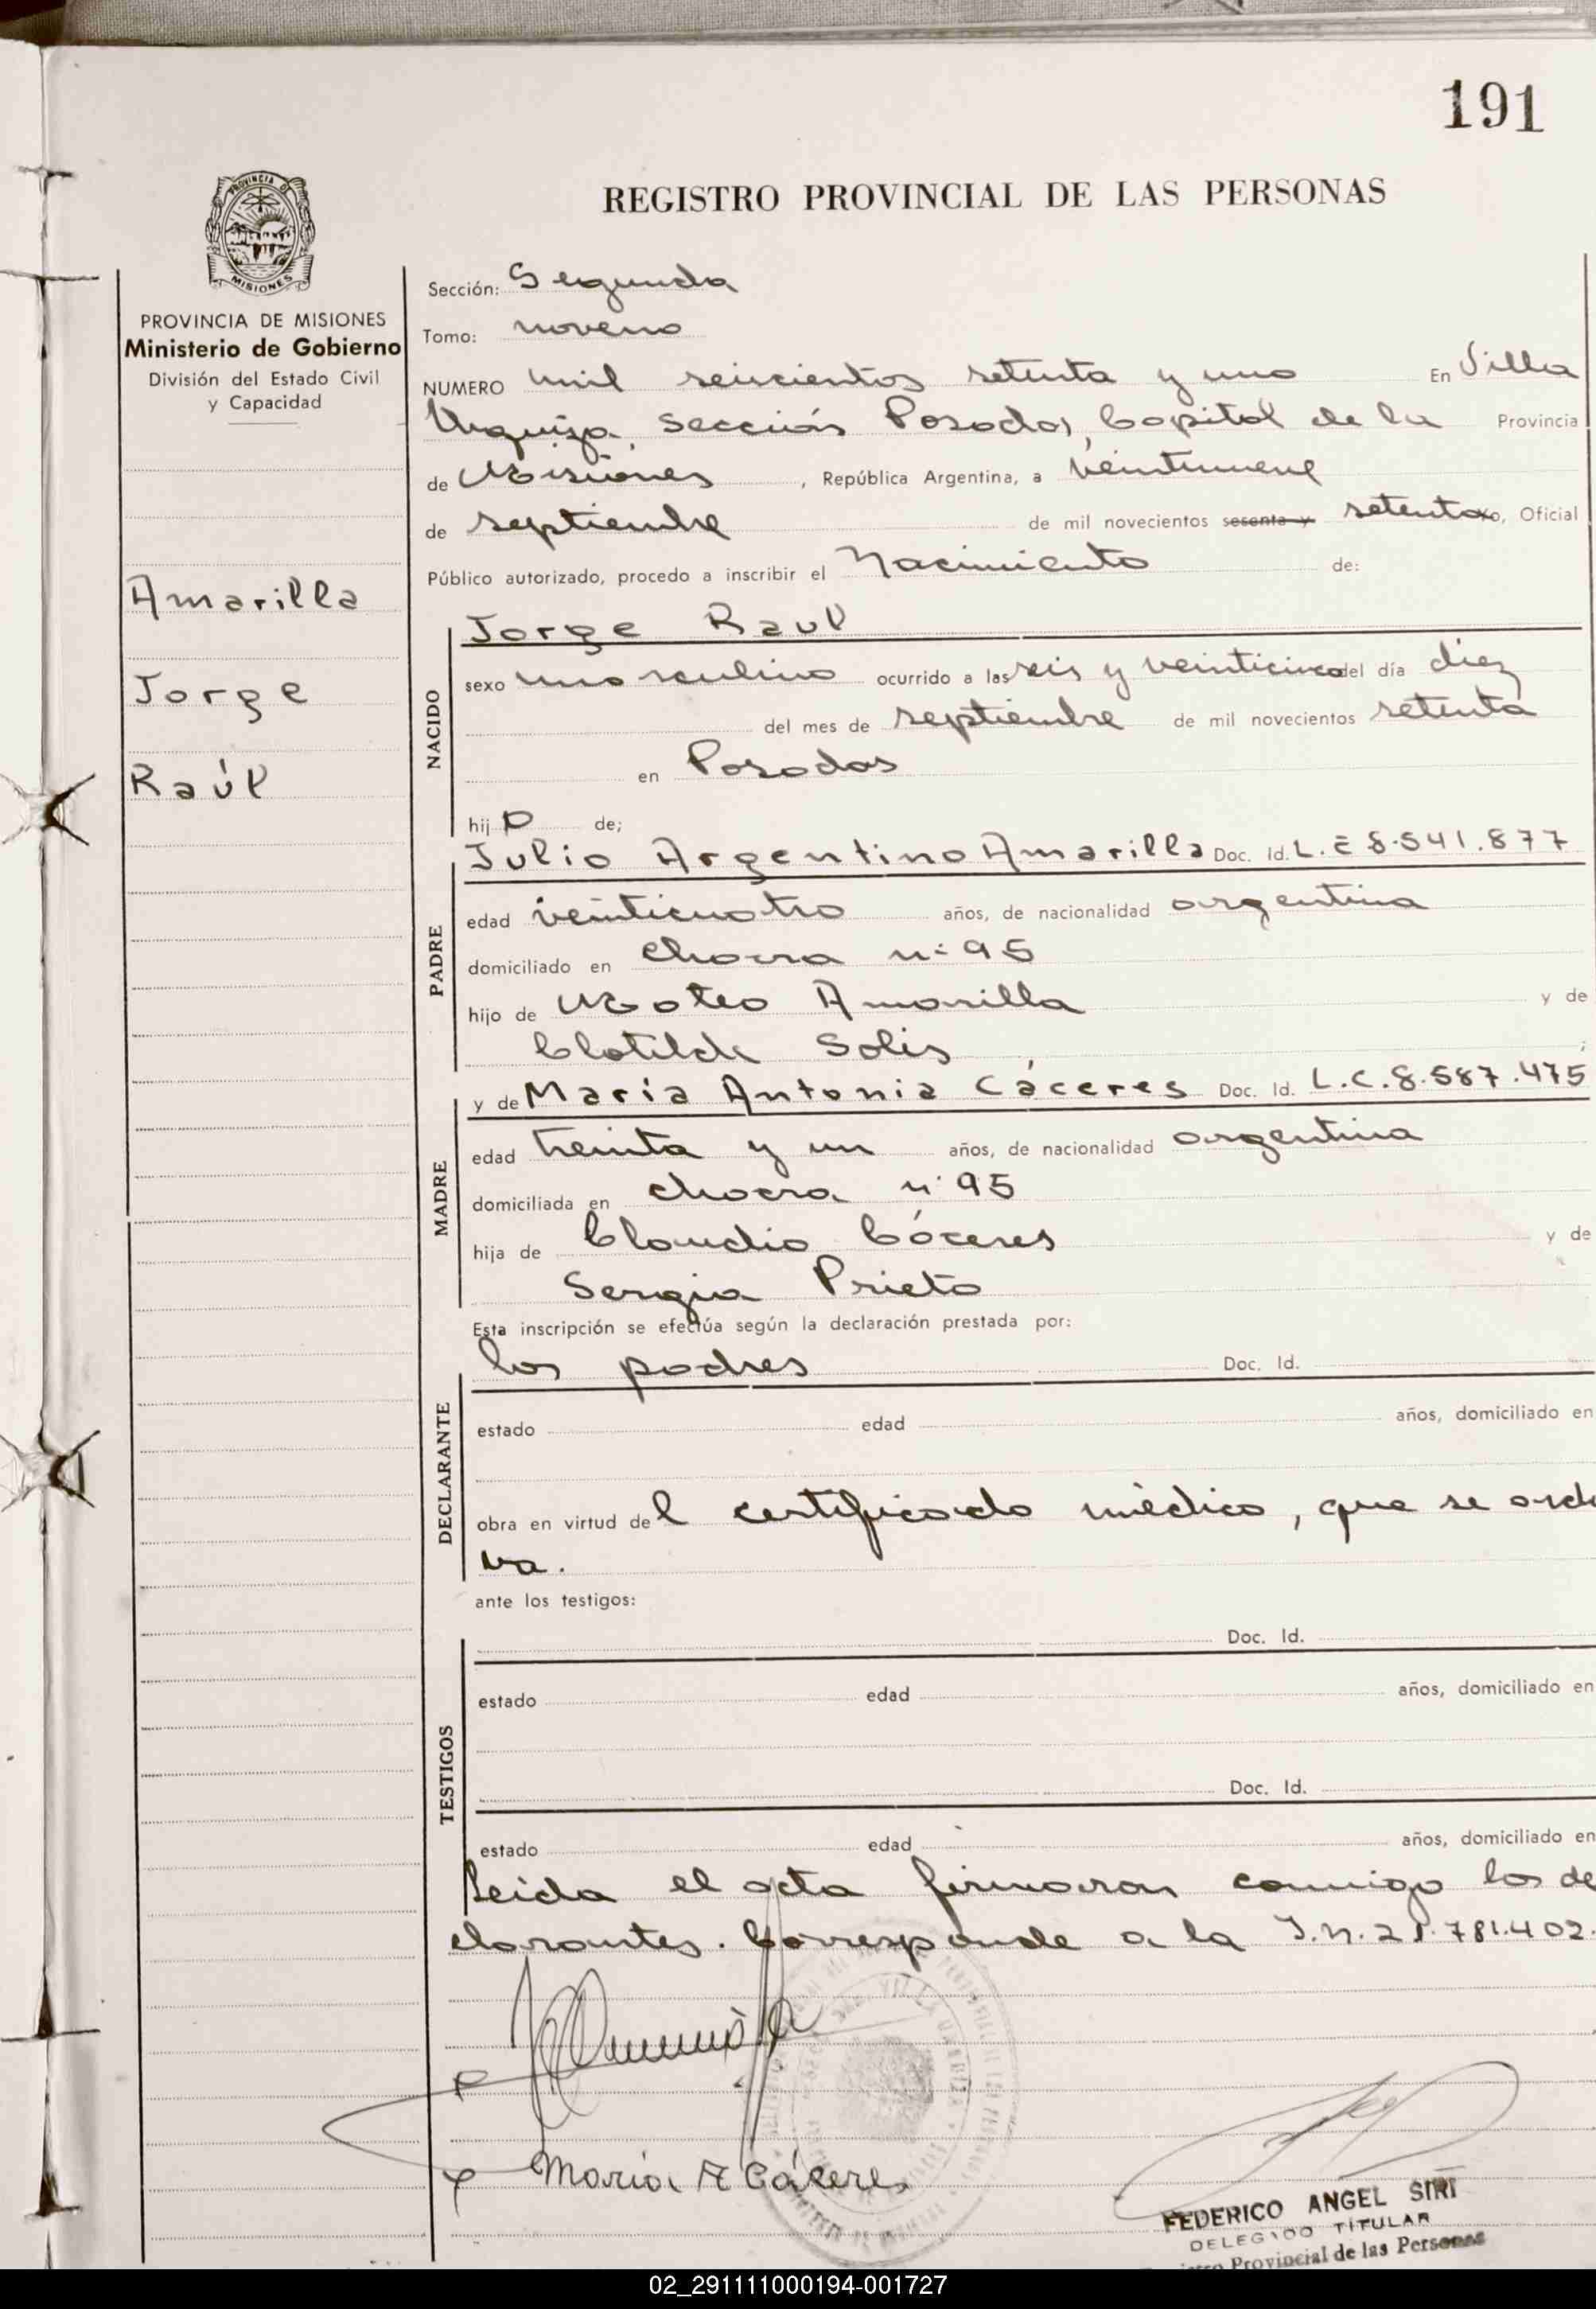 191
REGISTRO PROVINCIAL DE LAS PERSONAS
PROVINCIA DE
MISIONES
PROVINCIA DE MISIONES
Ministerio de Gobierno
División del Estado Civil
y Capacidad
Amarilla
Jorge
Raúl
Sección: Segunda
Tomo: noveno
NUMERO mil seiscientos setenta y uno En Villa
Urquiza, sección Posadas, Capital de la Provincia
de Misiones, República Argentina, a veintinueve
de septiembre de mil novecientos sesenta y setenta xo, Oficial
Público autorizado, procedo a inscribir el Nacimiento de:
NACIDO
Jorge Raul
sexo masculino ocurrido a las seis y veinticinco del día diez
del mes de septiembre de mil novecientos setenta
en Posadas
hijo de;
PADRE
Julio Argentino Amarilla Doc. Id. L.E 8.541.877
edad veinticuatro años, de nacionalidad argentina
domiciliado en chacra nº 95
hijo de Mateo Amarilla y de
Clotilde Solis ;
MADRE
y de María Antonia Cáceres Doc. Id. L.C.8.587.475
edad treinta y un años, de nacionalidad argentina
domiciliada en chacra nº 95
hija de Claudio Cáceres y de
Sergia Prieto
Esta inscripción se efectúa según la declaración prestada por:
DECLARANTE
los padres Doc. Id.
estado edad años, domiciliado en
obra en virtud del certificado médico, que se archi
va.
ante los testigos:
TESTIGOS
Doc. Id.
estado edad años, domiciliado en
Doc. Id.
estado edad años, domiciliado en
Leida el acta firmaron conmigo los de
clarantes. Corresponde a la I.N. 21.781.402.
Amarilla
María A Cáceres
FEDERICO ANGEL SIRI
DELEGADO TITULAR
Provincial de las Personas
02_291111000194-001727